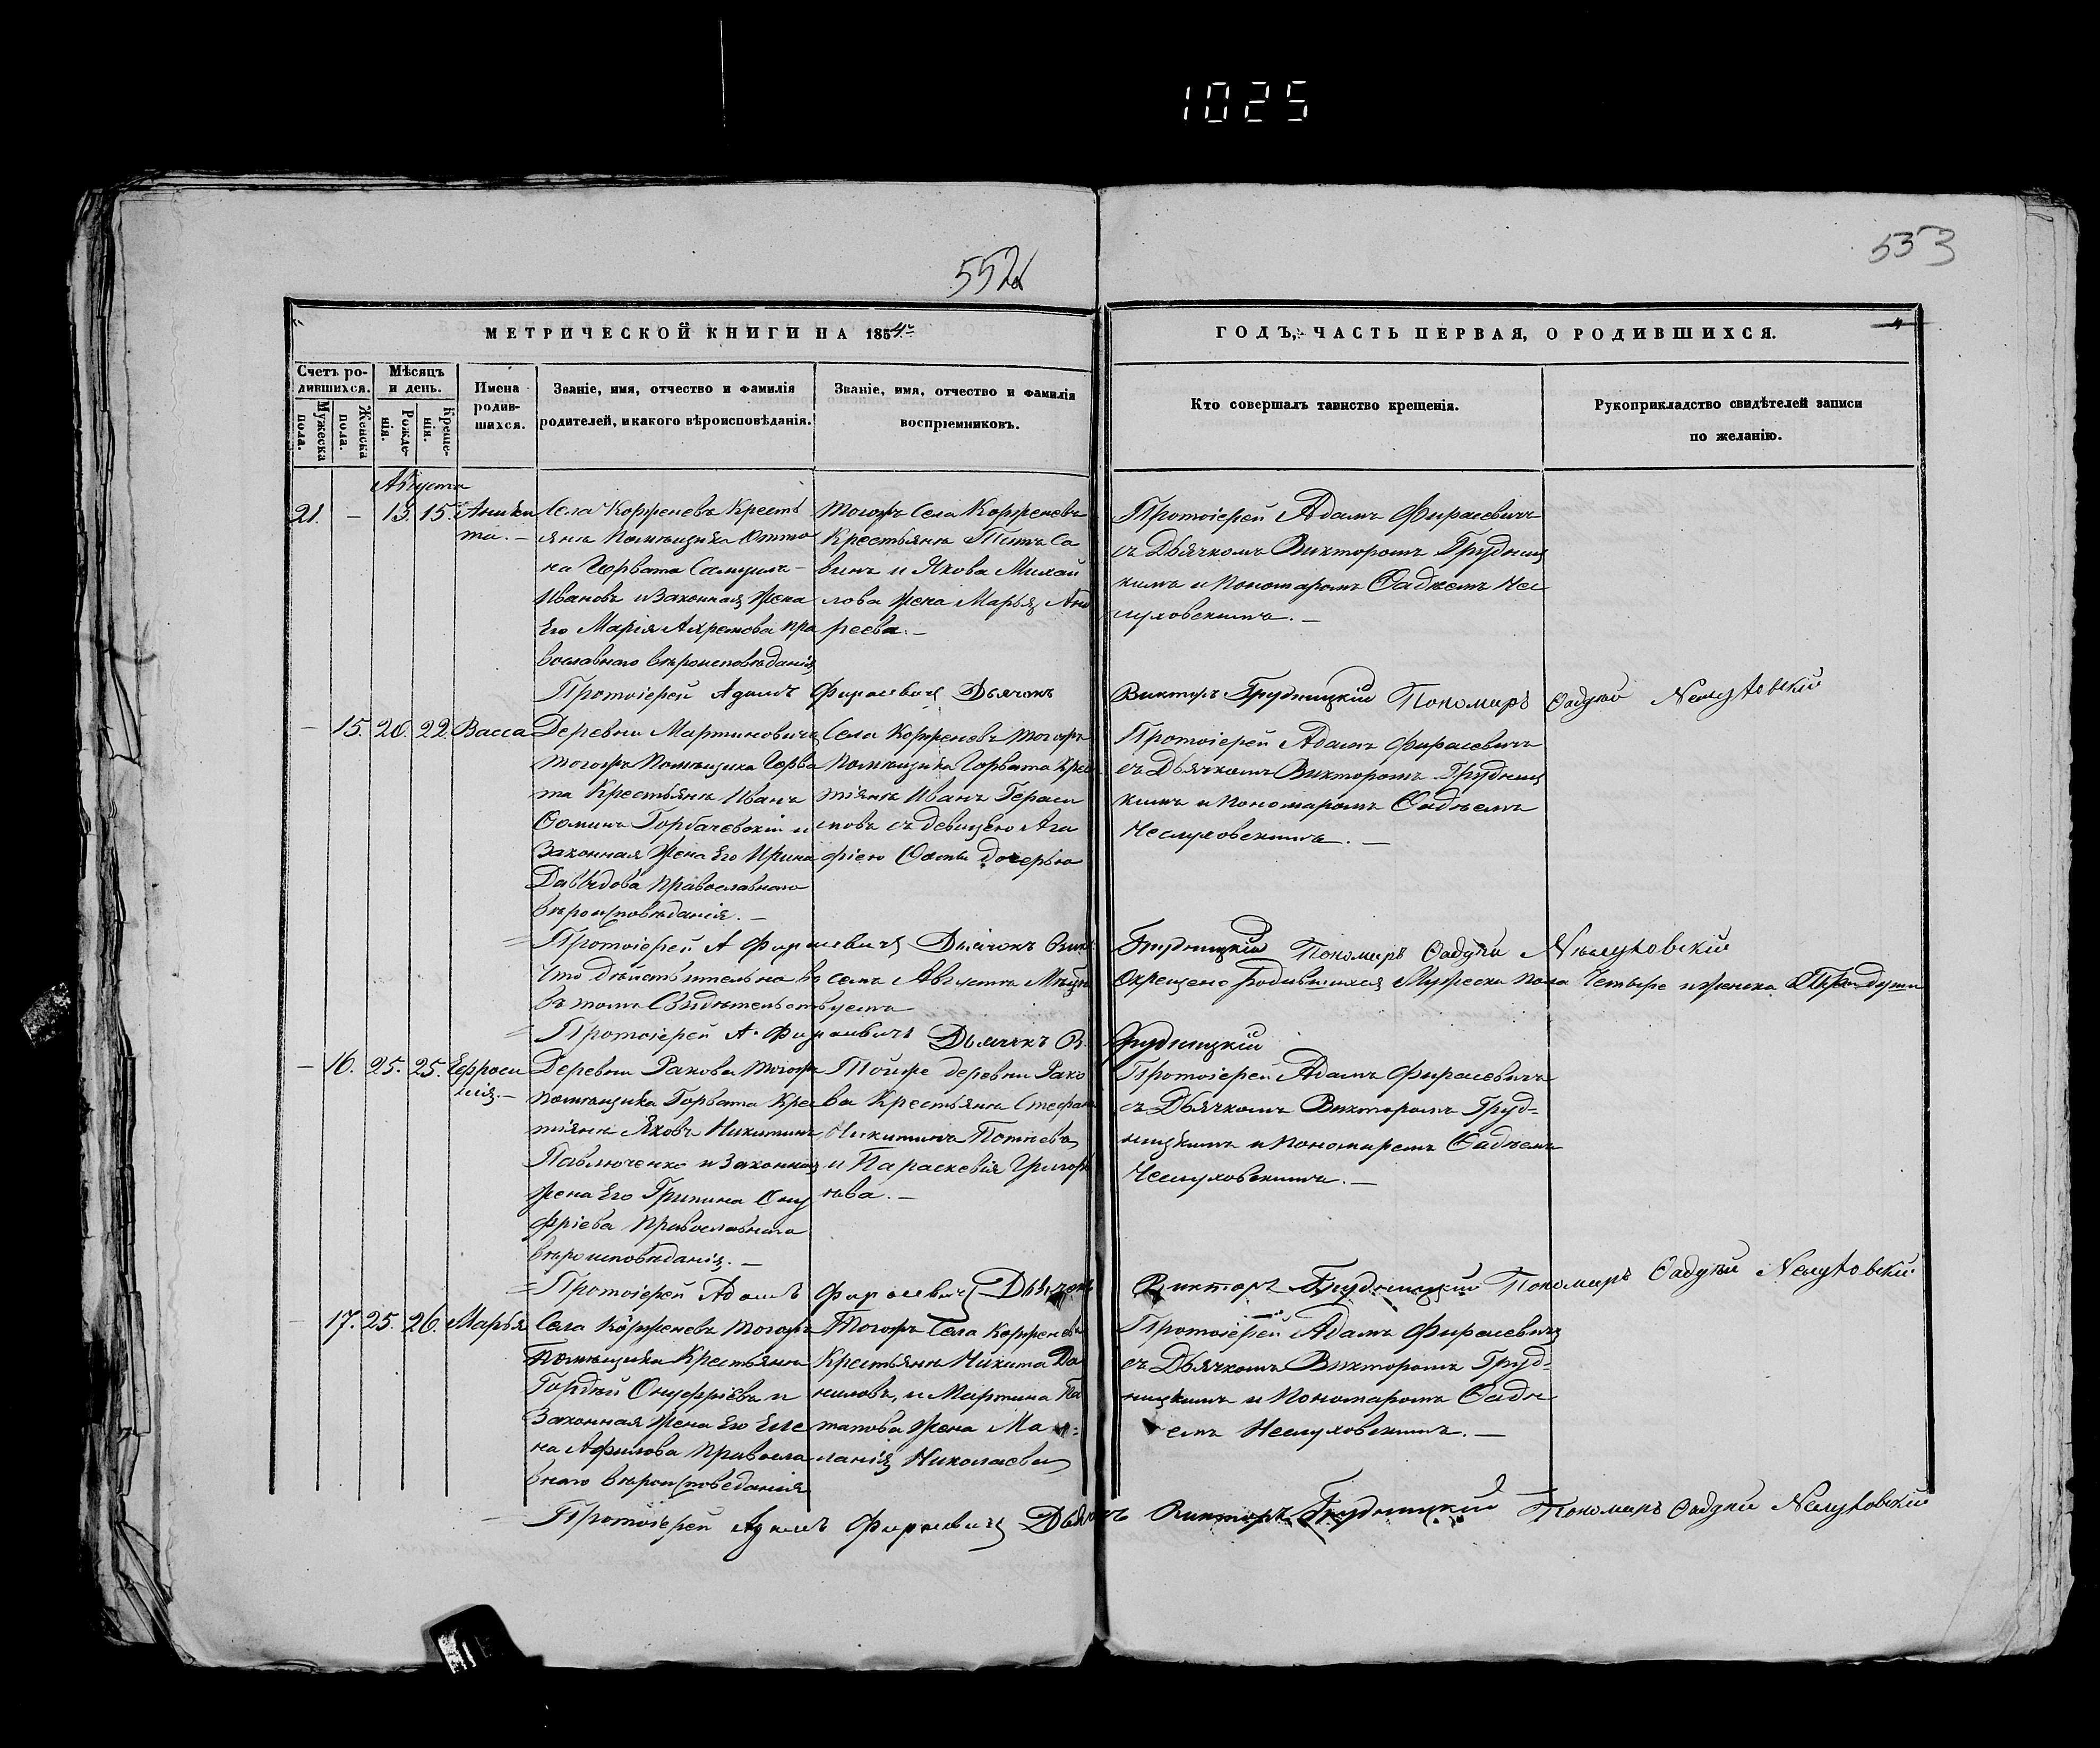 1025
552
553
МЕТРИЧЕСКОЙ КНИГИ НА 1854
ГОДЪ, ЧАСТЬ ПЕРВАЯ, О РОДИВШИХСЯ.
Счетъ ро-
дившихся.
Мужеска
пола.
Женска
пола.
Мѣсяцъ
и день.
Рожде-
нія.
Креще-
нія.
Имена
родив-
шихся.
Званіе, имя, отчество и фамилія
родителей, и какого вѣроисповѣданія.
Званіе, имя, отчество и фамилія
воспріемниковъ.
Кто совершалъ таинство крещенія.
Рукоприкладство свидѣтелей записи
по желанію.
Августа
21. — 15. 15. Аники
та. —
Села Корженевъ Кресть
яне Помѣщика Отто
на Горвата Самуилъ
Ивановъ и Законная Жена
Его Марія Ахремова пра
вославнаго вѣроисповѣданія
Тогожъ Села Корженевъ
Крестьяне Титъ Са
винъ и Якова Михай
лова Жена Марья Анд
реева. —
Протоіерей Адамъ Фирасевичъ
съ Дьячкомъ Викторомъ Грудниц
кимъ и Пономаромъ Фадѣемъ Нес
луховскимъ. —
Протоіерей Адамъ Фирасевичъ Дьячокъ Викторъ Грудницкій Пономаръ Фадѣй Неслуховскій
— 15. 20. 22. Васса
Деревни Мартиновичъ
тогожъ Помѣщика Горва
та Крестьяне Иванъ
Фоминъ Горбачевскій и
Законная Жена Его Ирина
Давыдова Православнаго
вѣроисповѣданія. —
Села Корженевъ тогожъ
Помѣщика Горвата Крес
тьяне Иванъ Гераси
мовъ съ девицею Ага
фіею Фомы дочерью
Протоіерей Адамъ Фирасевичъ
съ Дьячкомъ Викторомъ Грудниц
кимъ и Пономаромъ Фадѣемъ
Неслуховскимъ. —
Протоіерей А Фирасевичъ Дьячокъ Вик. Грудницкій Пономаръ Фадѣй Неслуховскій
Что дѣйствительно въ семъ Августѣ Мѣсяцѣ Окрещено родившихся Мужеска пола Четыре и женска души
въ томъ Свидѣтельствуемъ
Протоіерей А. Фирасевичъ Дьячокъ В. Грудницкій
— 16. 25. 25. Ефроси
нія. —
Деревни Ракова тогожъ
помѣщика Горвата Крес
тьяне Яковъ Никитинъ
Павлюченко и Законная
Жена Его Грипина Ону
фріева Православнаго
вѣроисповѣданія. —
Тойже деревни Рако
ва Крестьяне Стефанъ
Никитинъ
и Параскевія Григорь
ева. —
Протоіерей Адамъ Фирасевичъ
съ Дьячкомъ Викторомъ Груд-
ницкимъ и Пономаремъ Фадѣемъ
Неслуховскимъ. —
Протоіерей Адамъ Фирасевичъ Дьячокъ Викторъ Грудницкій Пономаръ Фадѣй Неслуховскій
— 17. 25. 26. Марья
Села Корженевъ тогожъ
Помѣщика Крестьяне
Гордѣй Онуфріевъ и
Законная Жена Его Еле
на Правосла
внаго вѣроисповеданія
Тогожъ Села Корженевъ
Крестьяне Никита Да
ниловъ, и Мартина По
тапова Жена Ма
ланія Николаева
Протоіерей Адамъ Фирасевичъ
съ Дьячкомъ Викторомъ Груд-
ницкимъ и Пономаромъ Фадѣ
емъ Неслуховскимъ. —
Протоіерей Адамъ Фирасевичъ Дьячокъ Викторъ Грудницкій Пономаръ Фадѣй Неслуховскій